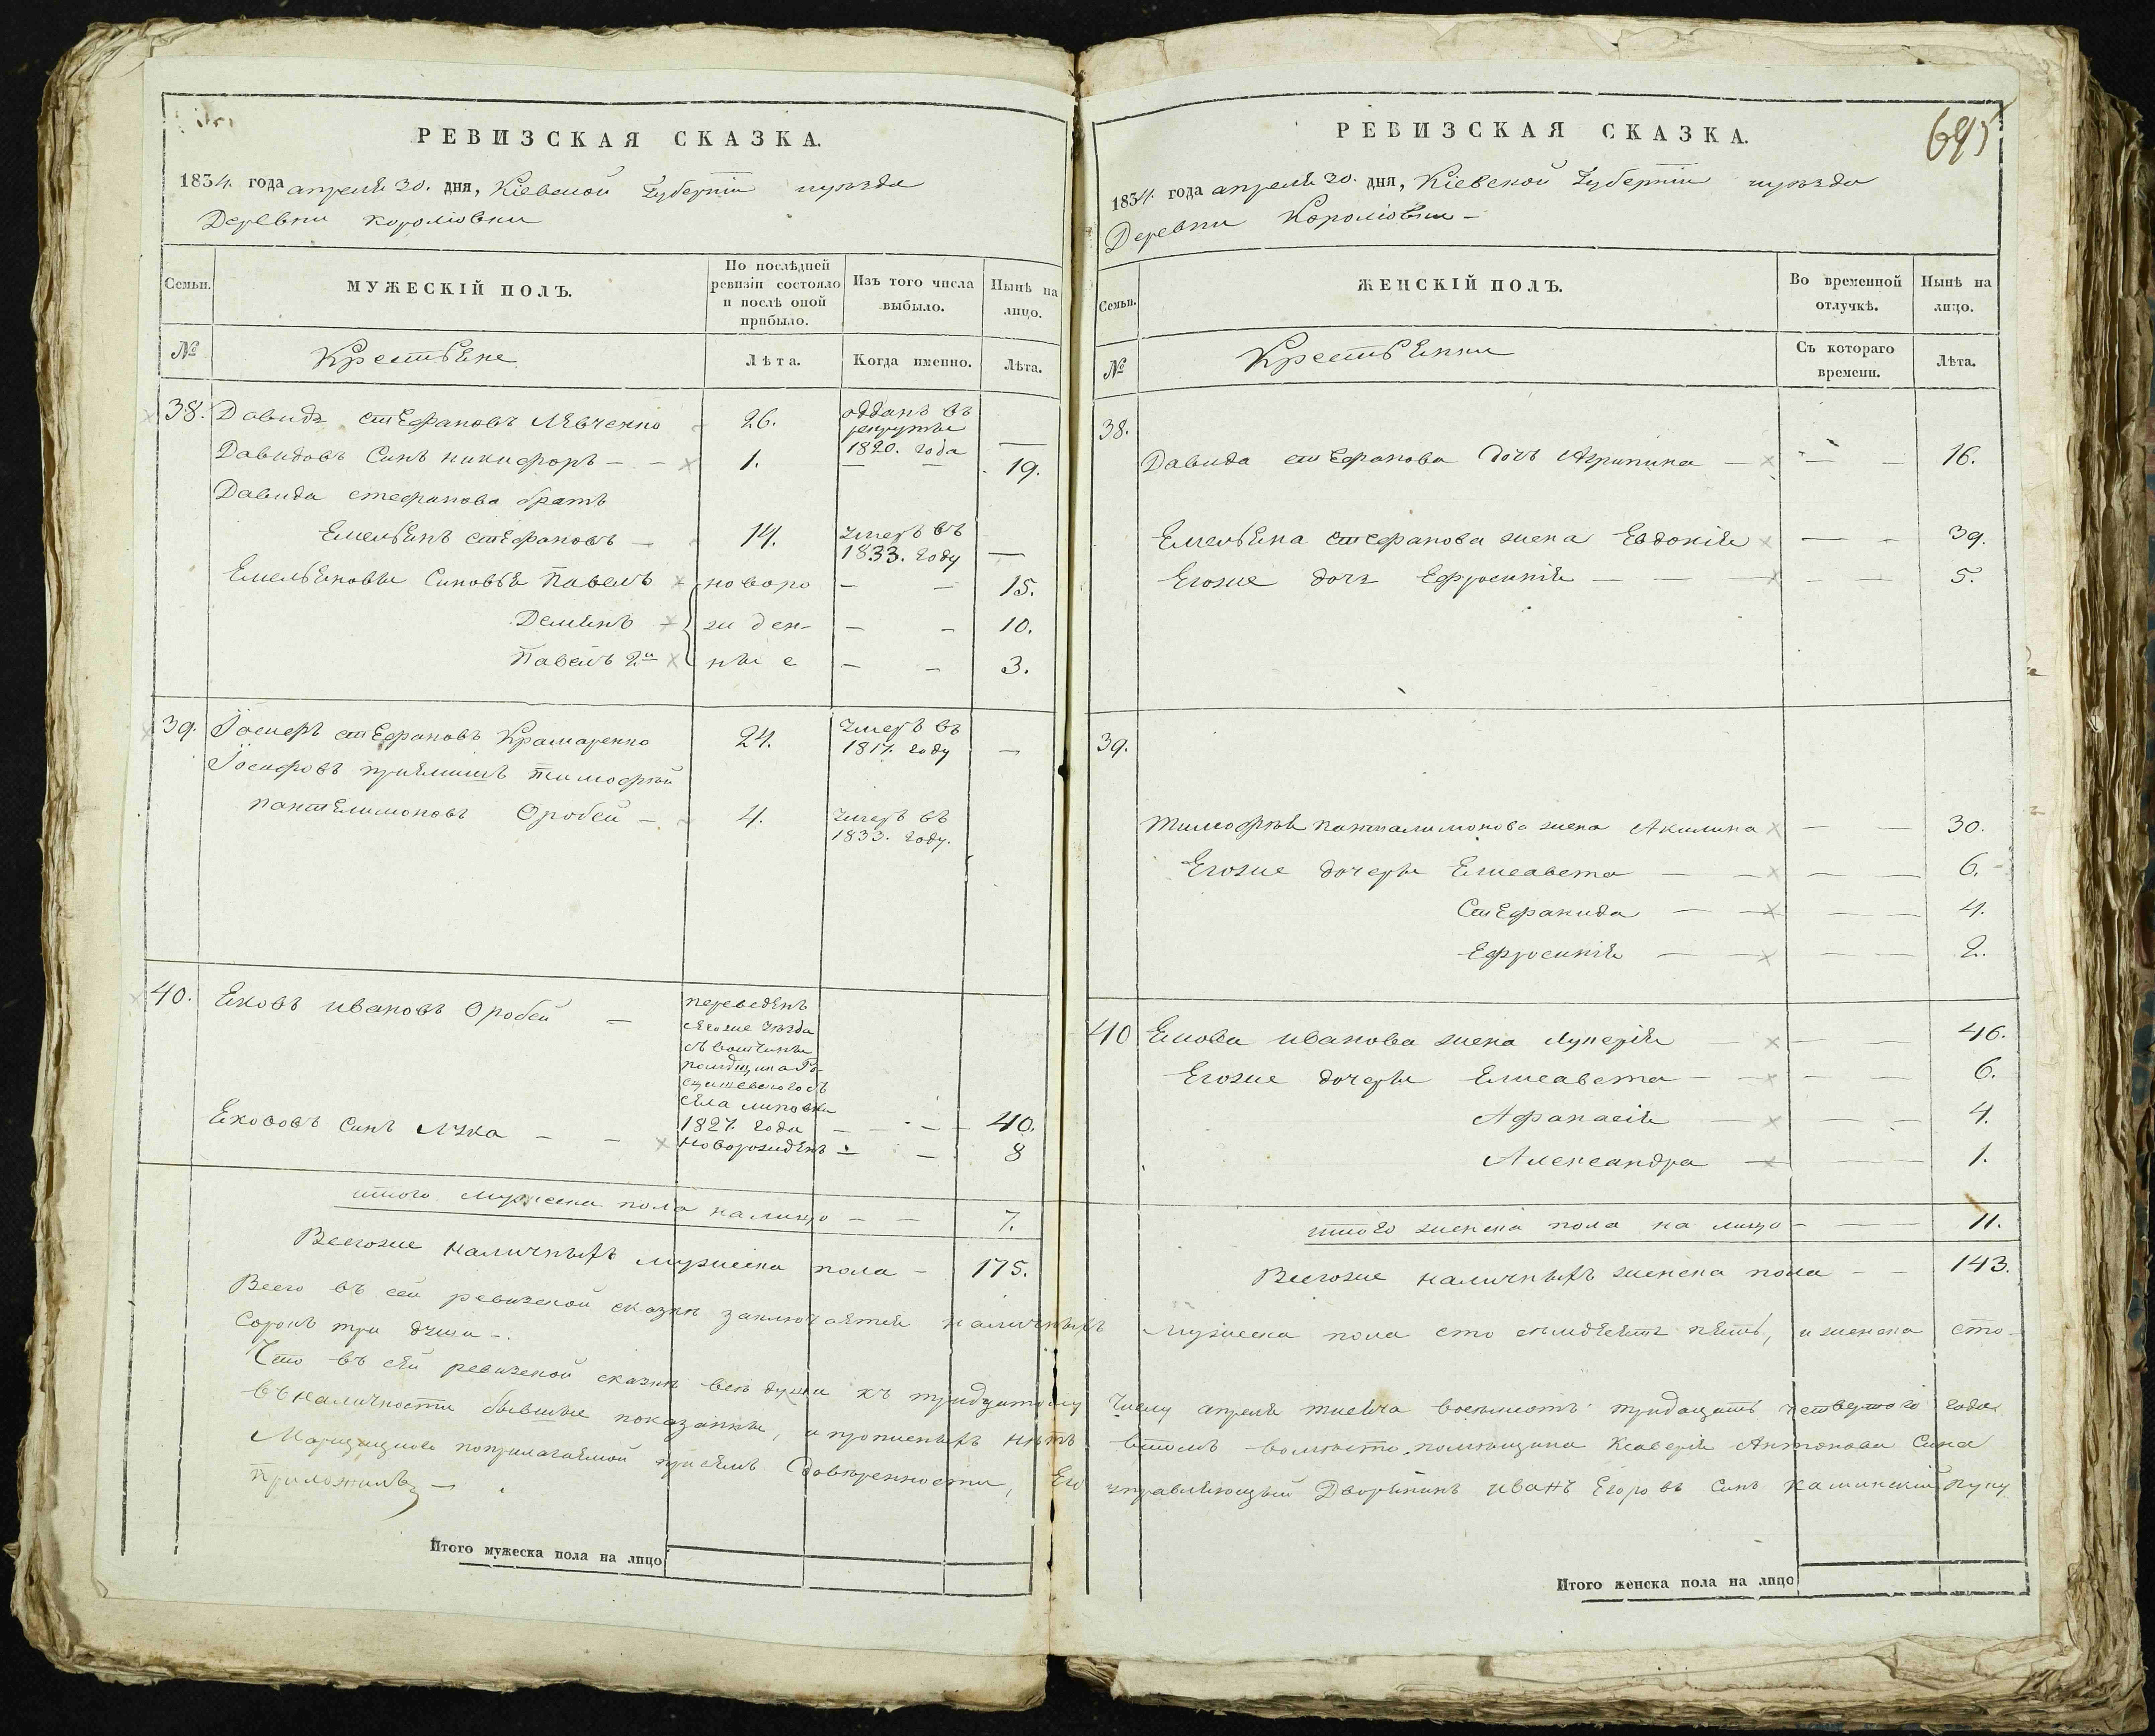 РЕВИЗСКАЯ СКАЗКА.
1834. года апреля 30. дня, Кіевской Губерніи уѣзда
Деревни Короліовки
Семьи.
МУЖЕСКІЙ ПОЛЪ.
По послѣдней ревизіи состояло и послѣ оной прибыло.
Изъ того числа выбыло.
Нынѣ на лицо.
№
Крестьяне
Лѣта.
Когда именно.
Лѣта.
38. Давидъ стефановъ Лѣвченко 26. одданъ въ рекруты 1820. года —
Давидовъ Синъ никифоръ — — 1. — — 19.
Давида стефанова братъ
Емельянъ стефановъ — 14. умеръ въ 1833. году —
Емельяновы Синовья Павелъ новоро — — 15.
Демянъ жден- — — 10.
Павелъ 2й ные — — 3.
39. Іосифъ стефановъ Крамаренко 24. умеръ въ 1817. году —
Іосифовъ пріемишъ тимофѣй
пантелимоновъ Оробей — 4. умеръ въ 1833. году.
40. Яковъ ивановъ Оробей — переведенъ
сегоже уѣзда
съ вотчины
помѣщика Ро-
сцишевскогосъ
села липовки
1827. года — — — 40.
Якововъ Синъ Лука — — новорожденъ — — 8
итого мужеска пола налицо — — 7.
Всегоже наличныхъ мужеска пола — 175.
Всего въ сей ревизской сказкѣ заключается наличныхъ мужеска пола сто семдесятъ пять, и женска сто
Сорокъ три души —.
Что въ сей ревизской сказкѣ всѣ души къ тридцатому Числу апреля тисяча восемсотъ тридцать четвертого года
въ наличности бывшые показанны, и прописныхъ нѣтъ втомъ вомѣсто помѣщика Ксаверія Антонова Сина
поприлагаемой присемъ довѣренности, Его управляющый Дворянинъ иванъ Егоровъ Синъ Каминскій Руку
приложилъ —
Итого мужеска пола на лицо
РЕВИЗСКАЯ СКАЗКА.
695
1834. года апреля 30. дня, Кіевской Губерніи уѣзда
Деревни Короліовки —
Семьи.
ЖЕНСКІЙ ПОЛЪ.
Во временной отлучкѣ.
Нынѣ на лицо.
№
Крестьянки
Съ котораго времени.
Лѣта.
38.
Давида стефанова дочь Агрипина — — — 16.
Емельяна стефанова жена Евдокія — — 39.
Егоже дочь Ефросинія — — — — — 5.
39.
тимофѣя панталимонова жена Акилина — — 30.
Егоже дочеры Елисавета — — — — 6.
Стефанида — — — — 4.
Ефросинія — — — — 2.
40 Якова иванова жена Лукерія — — — 46.
Егоже дочеры Елисавета — — — — 6.
Афанасія — — — 4.
Александра — — — 1.
итого женска пола на лицо — — 11.
Всегоже наличныхъ женска пола — — 143.
Итого женска пола на лицо